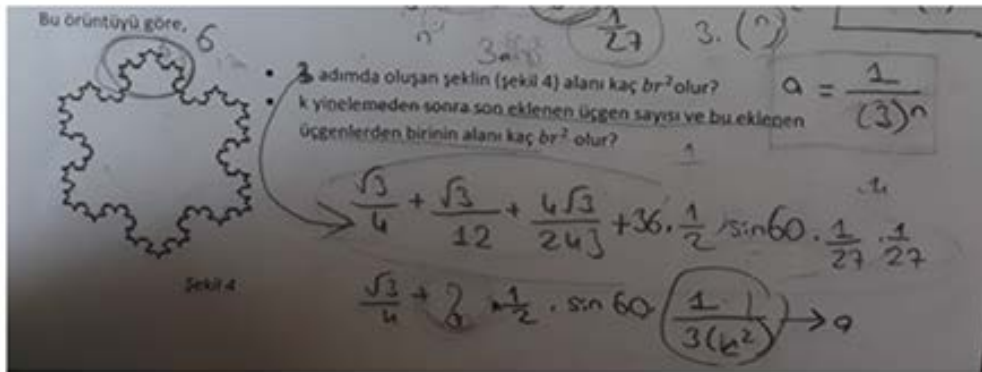 Bu örüntüyü göre, 6
1/27 3. (n)
3 adımda oluşan şeklin (şekil 4) alanı kaç br² olur?
a = 1/(3)ⁿ
k yinelemeden sonra son eklenen üçgen sayısı ve bu eklenen
üçgenlerden birinin alanı kaç br² olur?
√3/4 + √3/12 + 4√3/243 + 36 . 1/2 sin60 . 1/27 . 1/27
Şekil 4
√3/4 + ? . 1/2 . sin 60 1 1/3(k²) → a